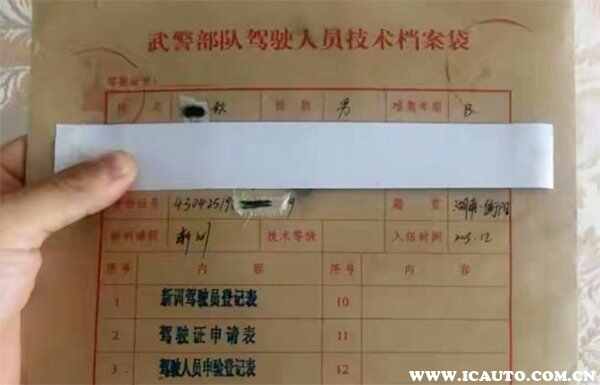 武警部队驾驶人员技术档案袋
驾驶证号:
姓 名 秋 性别 男 准驾车型 B
证号 43042519 9 籍贯 湖南·衡阳
新训 技术等级 入伍时间 2005.12
序号 内 容 序号 内 容
1 新训驾驶员登记表 10
2 驾驶证申请表 11
3 驾驶人员申验登记表 12
www.ICAUTO.COM.CN